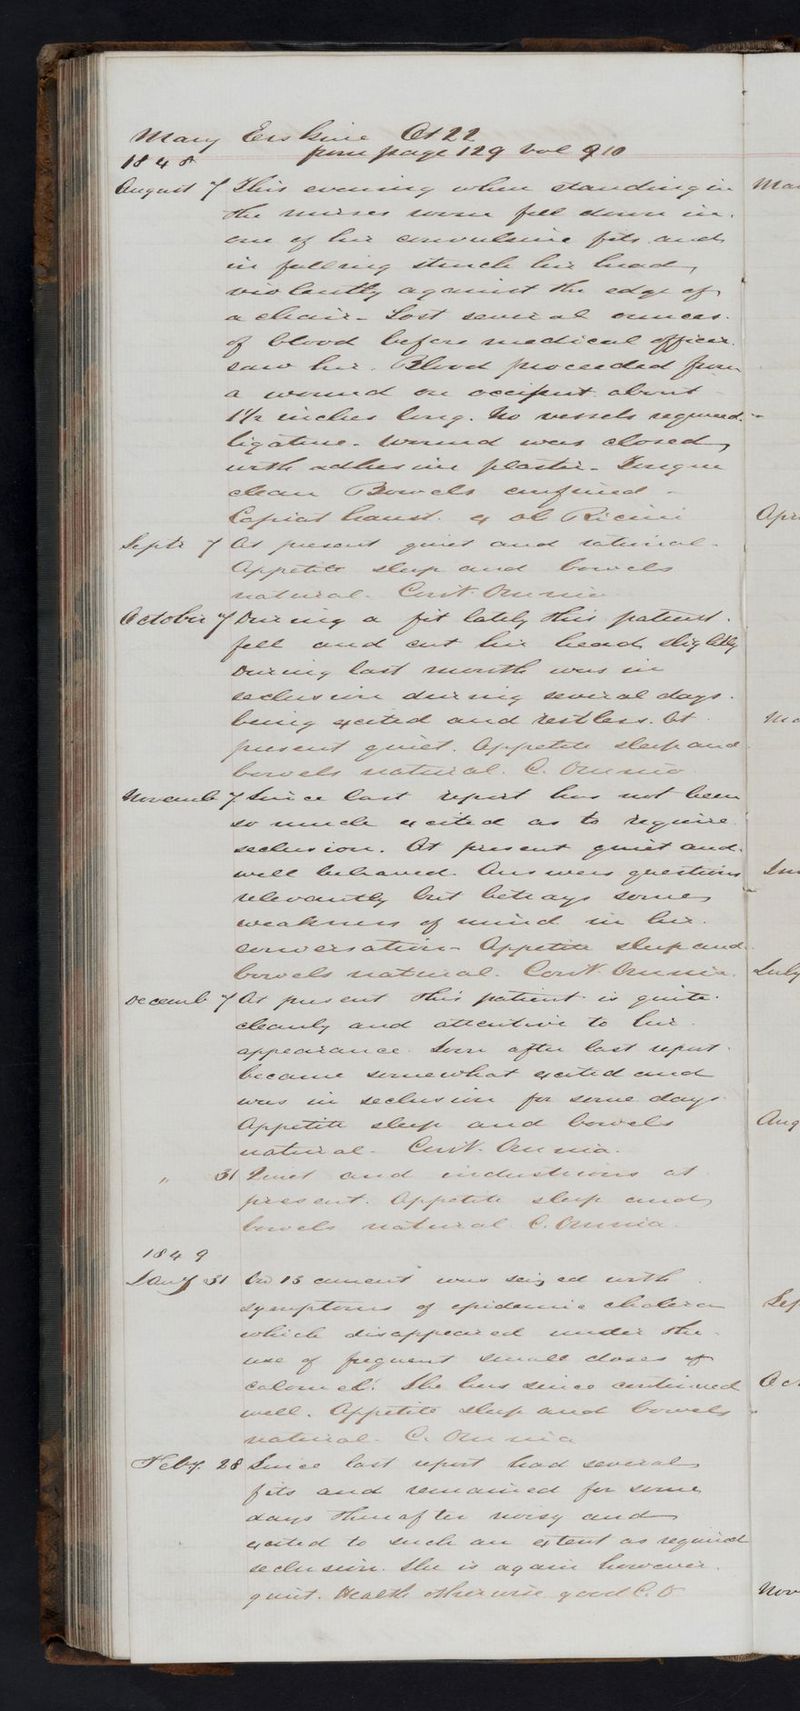 Mary Erskine Æt 22
from page 129 vol 9 10
1848
August 7 This evening when standing in
the nurses room fell down in
one of her convulsive fits and
in falling struck her head
violently against the edge of
a chair - Lost several ounces
of blood before medical officer
saw her. Blood proceeded from
a wound on occiput about
1½ inches long. No vessels required
ligature. Wound was closed
with adhesive plaster - Tongue
clean Bowels confined -
Capiat haust. ex ol Ricini
Septr 7 At present quiet and rational.
Appetite sleep and bowels
natural. Cont. Omnia
October 7 During a fit lately this patient
fell and cut her head slightly
During last month was in
seclusion during several days
being excited and restless. At
present quiet. Appetite sleep and
bowels natural. C. Omnia
Novemb 7 Since last report has not been
so much excited as to require
seclusion. At present quiet and
well behaved. Answers questions
relevantly but betrays some
weakness of mind in her
conversation - Appetite sleep and
bowels natural. Cont. Omnia.
Decemb 7 At present this patient is quite
cleanly and attentive to her
appearance. Soon after last report
became somewhat excited and
was in seclusion for some days
Appetite sleep and bowels
natural - Cont. Omnia.
" 31 Quiet and industrious at
present. Appetite sleep and
bowels natural. C. Omnia.
1849
Jany 31 On 13 current was seized with
symptoms of epidemic cholera
which disappeared under the
use of frequent small doses of
calomel. She has since continued
well. Appetite sleep and bowels
natural - C. Omnia
Feby. 28 Since last report had several
fits and remained for some
days thereafter noisy and
excited to such an extent as required
seclusion. She is again however
quiet. Health otherwise good C. O
Mar
Apri
Ma
Jun
July
Aug
Sep
Oct
Nov